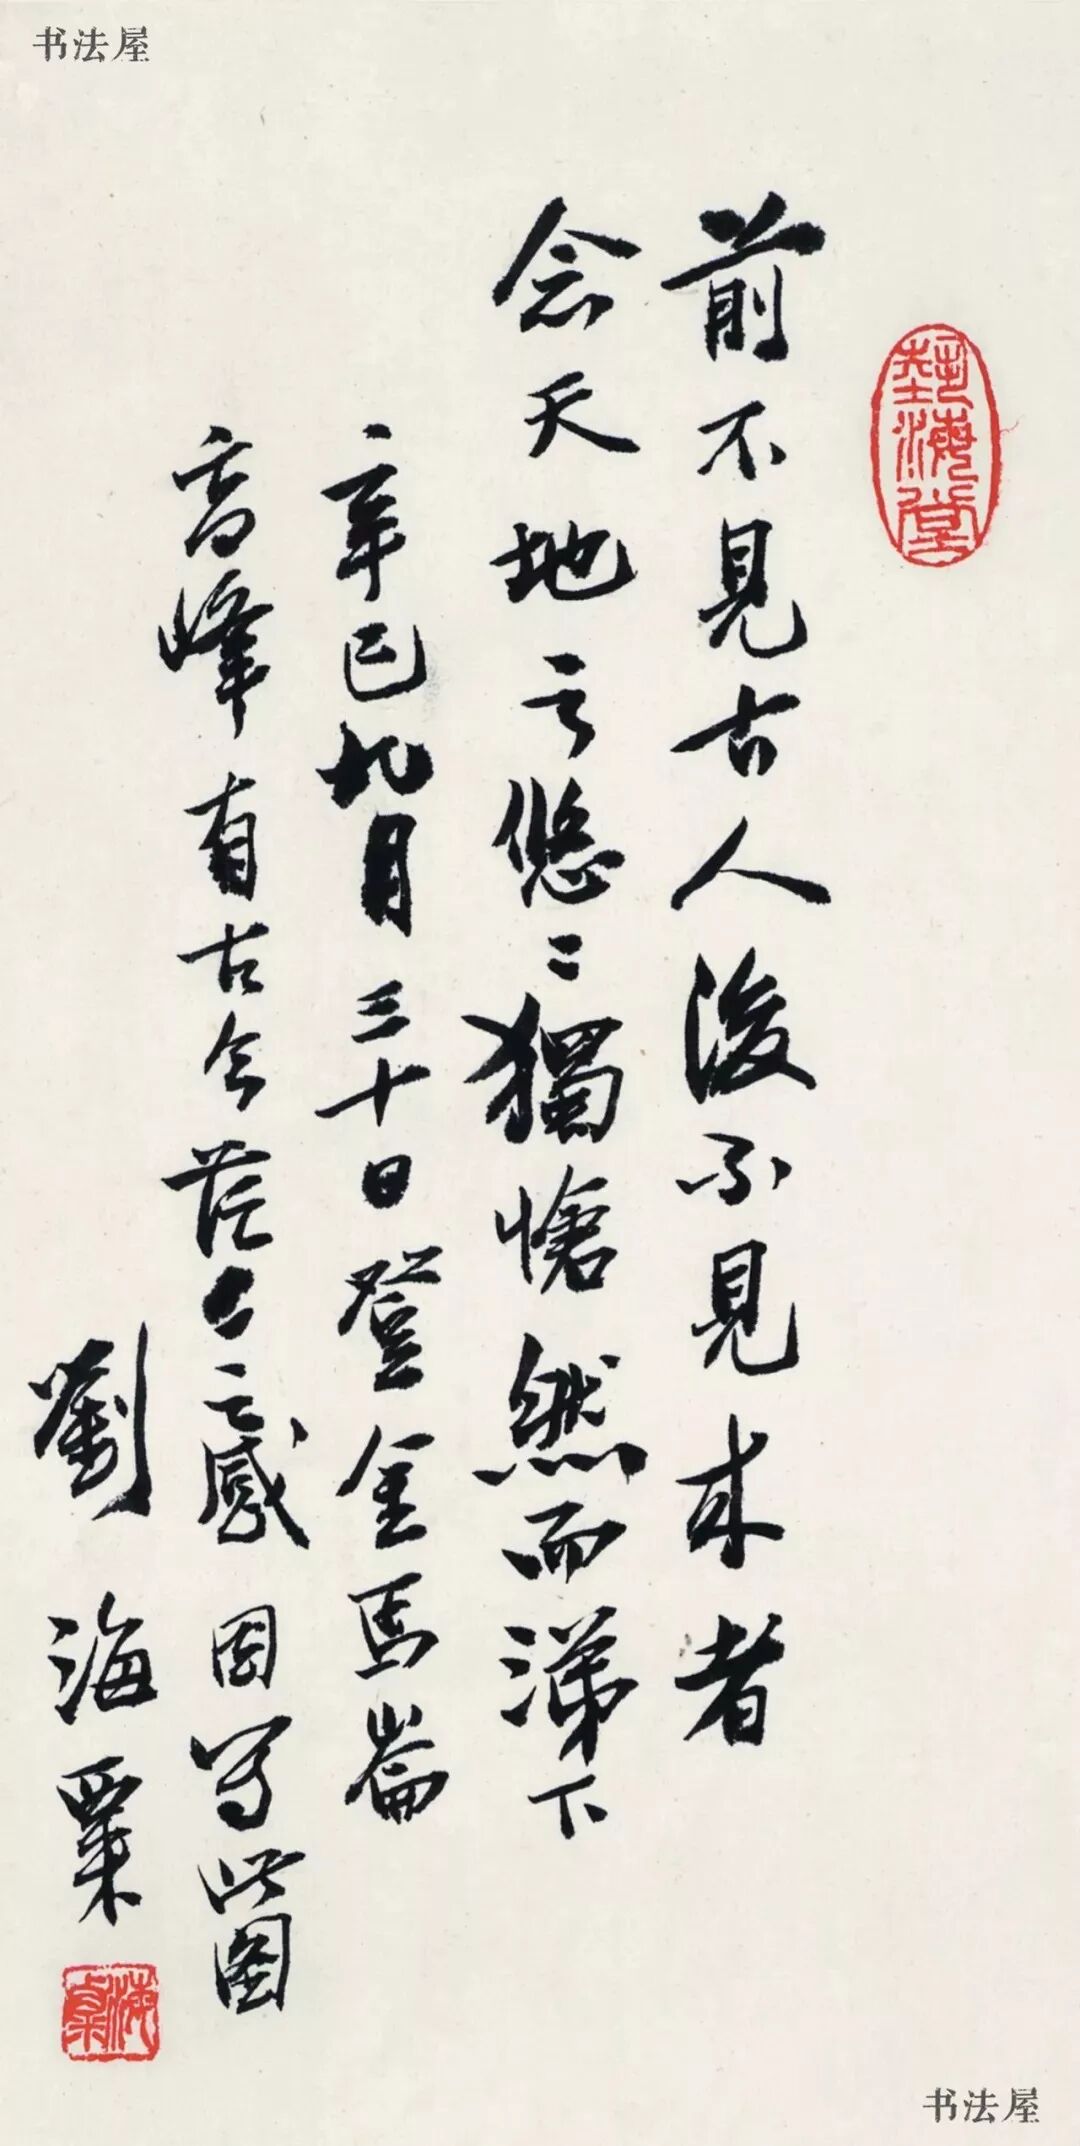 书法屋
藝海堂
前不見古人後不見来者
念天地之悠〻獨愴然而涕下
辛巳九月三十日登金馬崙
高峰有古今茫〻之感因写此圖
劉海粟
海粟
书法屋